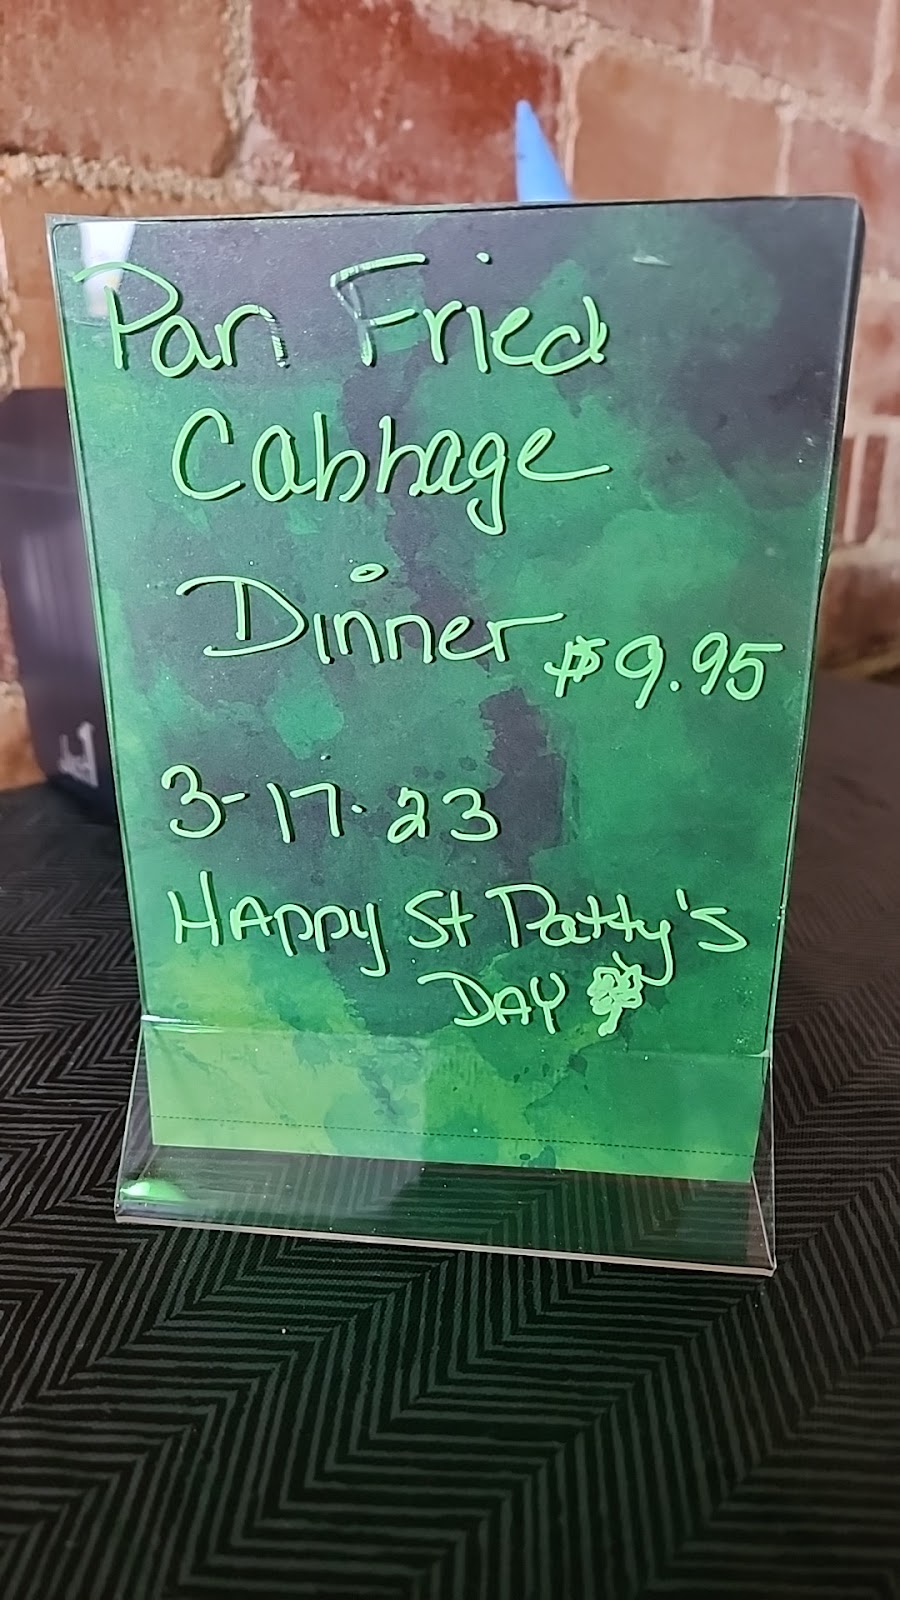 Pan Fried
Cabbage
Dinner $9.95
3-17-23
HAppy St Patty's
DAY